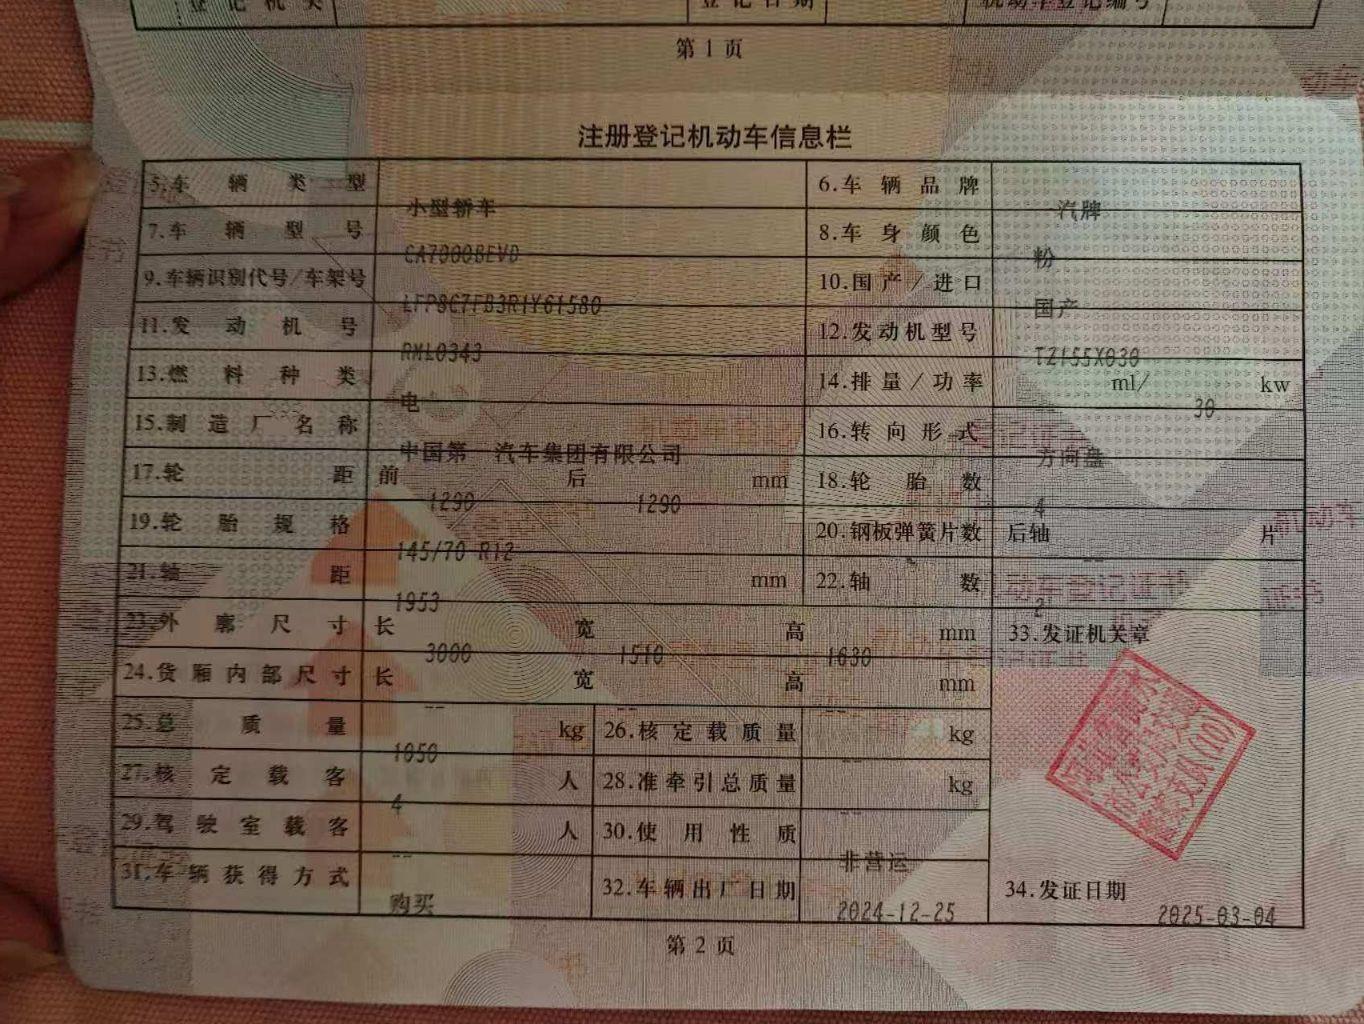 登记机关 登记日期 机动车登记编号
第 1 页
注册登记机动车信息栏
5.车辆类型 小型轿车 6.车辆品牌 汽牌
7.车辆型号 CA7000BEVD 8.车身颜色 粉
9.车辆识别代号/车架号 LFP8C7FB3R1Y61580 10.国产/进口 国产
11.发动机号 RML0343 12.发动机型号 TZ155X030
13.燃料种类 电 14.排量/功率 ml/ 30 kw
15.制造厂名称 中国第一汽车集团有限公司 16.转向形式 方向盘
17.轮距 前 1290 后 1290 mm 18.轮胎数 4
19.轮胎规格 145/70 R12 20.钢板弹簧片数 后轴 -- 片
21.轴距 1953 mm 22.轴数 2
23.外廓尺寸 长 3000 宽 1510 高 1630 mm 33.发证机关章
24.货厢内部尺寸 长 -- 宽 -- 高 -- mm
25.总质量 1050 kg 26.核定载质量 -- kg
27.核定载客 4 人 28.准牵引总质量 kg
29.驾驶室载客 -- 人 30.使用性质 非营运
31.车辆获得方式 购买 32.车辆出厂日期 2024-12-25 34.发证日期 2025-03-04
第 2 页